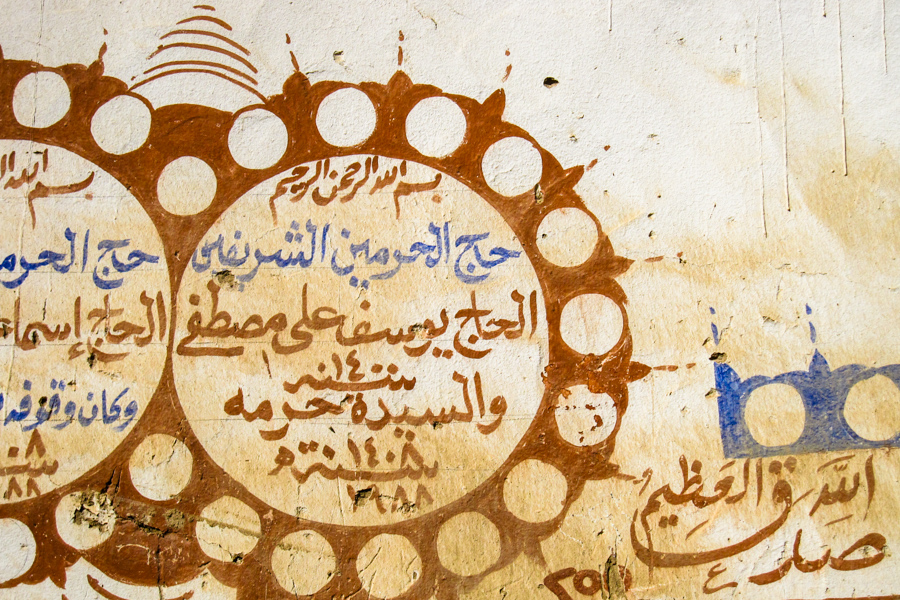 بسم الله الرحمن الرحيم
حج الحرمين الشريفين
الحاج يوسف على مصطفى
والسيدة حرمه
سنة ١٤٠٨
١٩٨٨
بسم الله
حج الحرم
الحاج إسما
وكان وقوفه
٨
٨٨
صدق الله العظيم